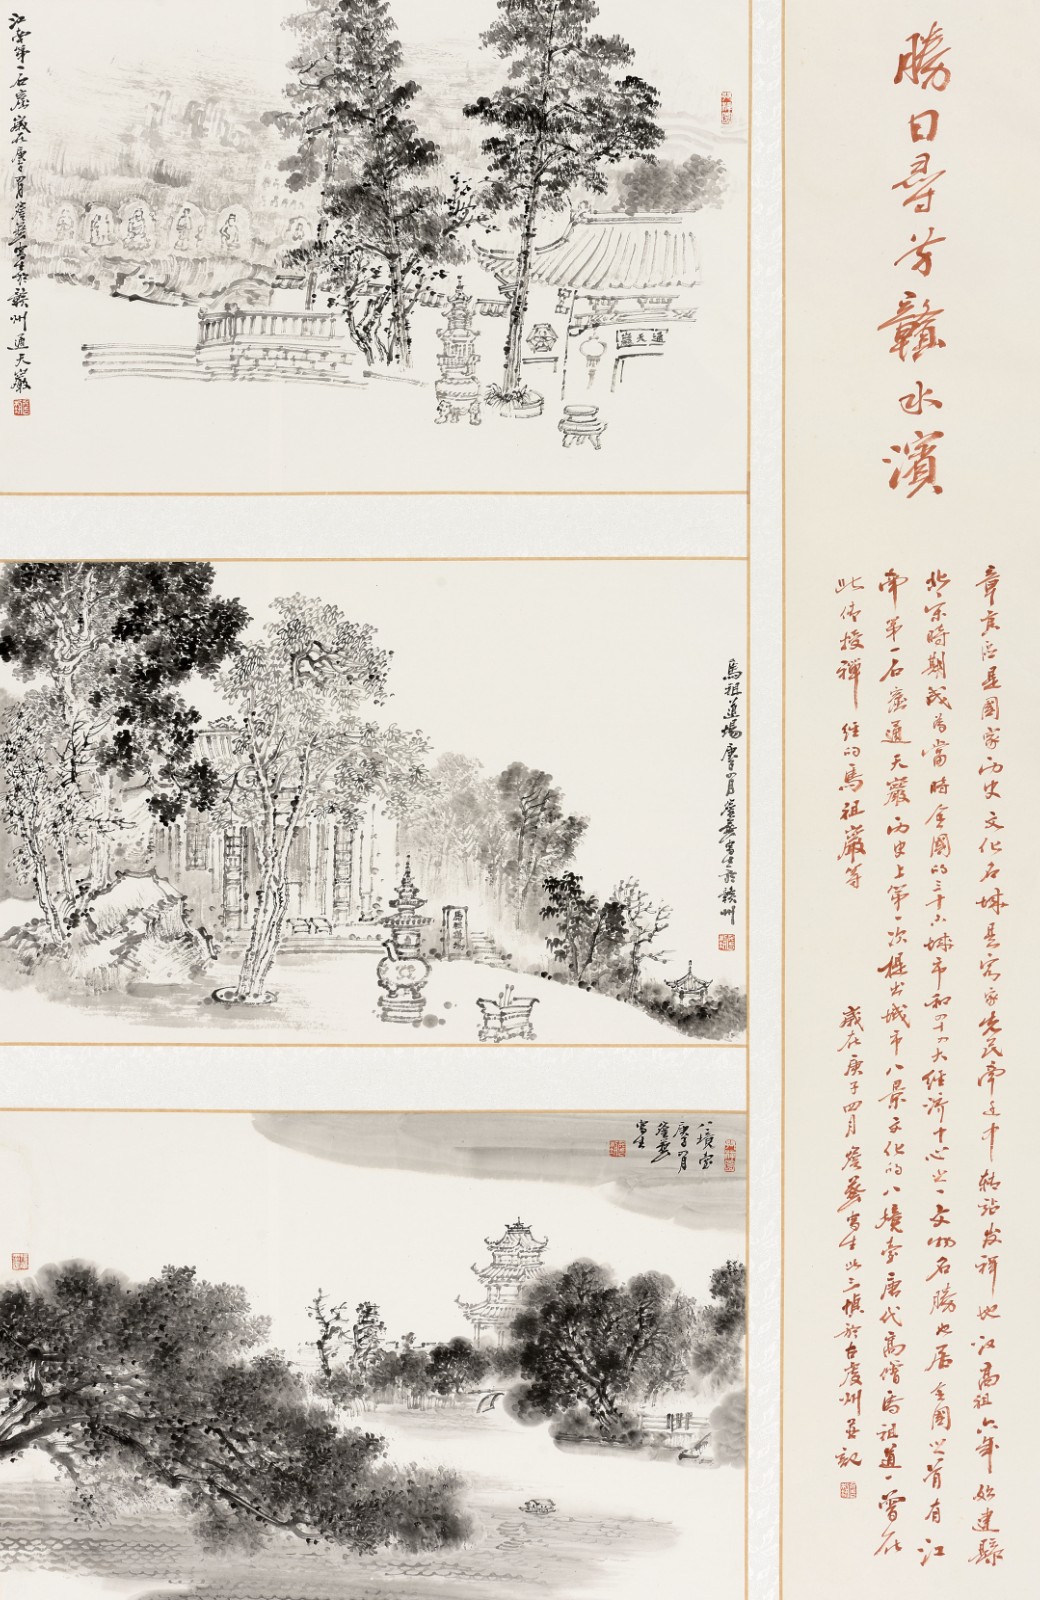 勝日尋芳贛水濱
章貢區是國家历史文化名城是客家先民南迁中轉站发祥地汉高祖六年始建縣
北宋時期成為當時全國的三十六城市和四十四大经济中心之一文物名勝也居全國世前有江
南第一石窟通天巖历史上第一次提出城市八景文化的八境臺唐代高僧馬祖道一曾在
此传授禪经的馬祖巖等
歲在庚子四月
寫生此三幀於古虔州并記
江南第一石窟歲在庚子四月
寫生於贛州通天巖
通天巖
馬祖道場庚子四月
寫生於贛州
八境台
庚子四月
寫生